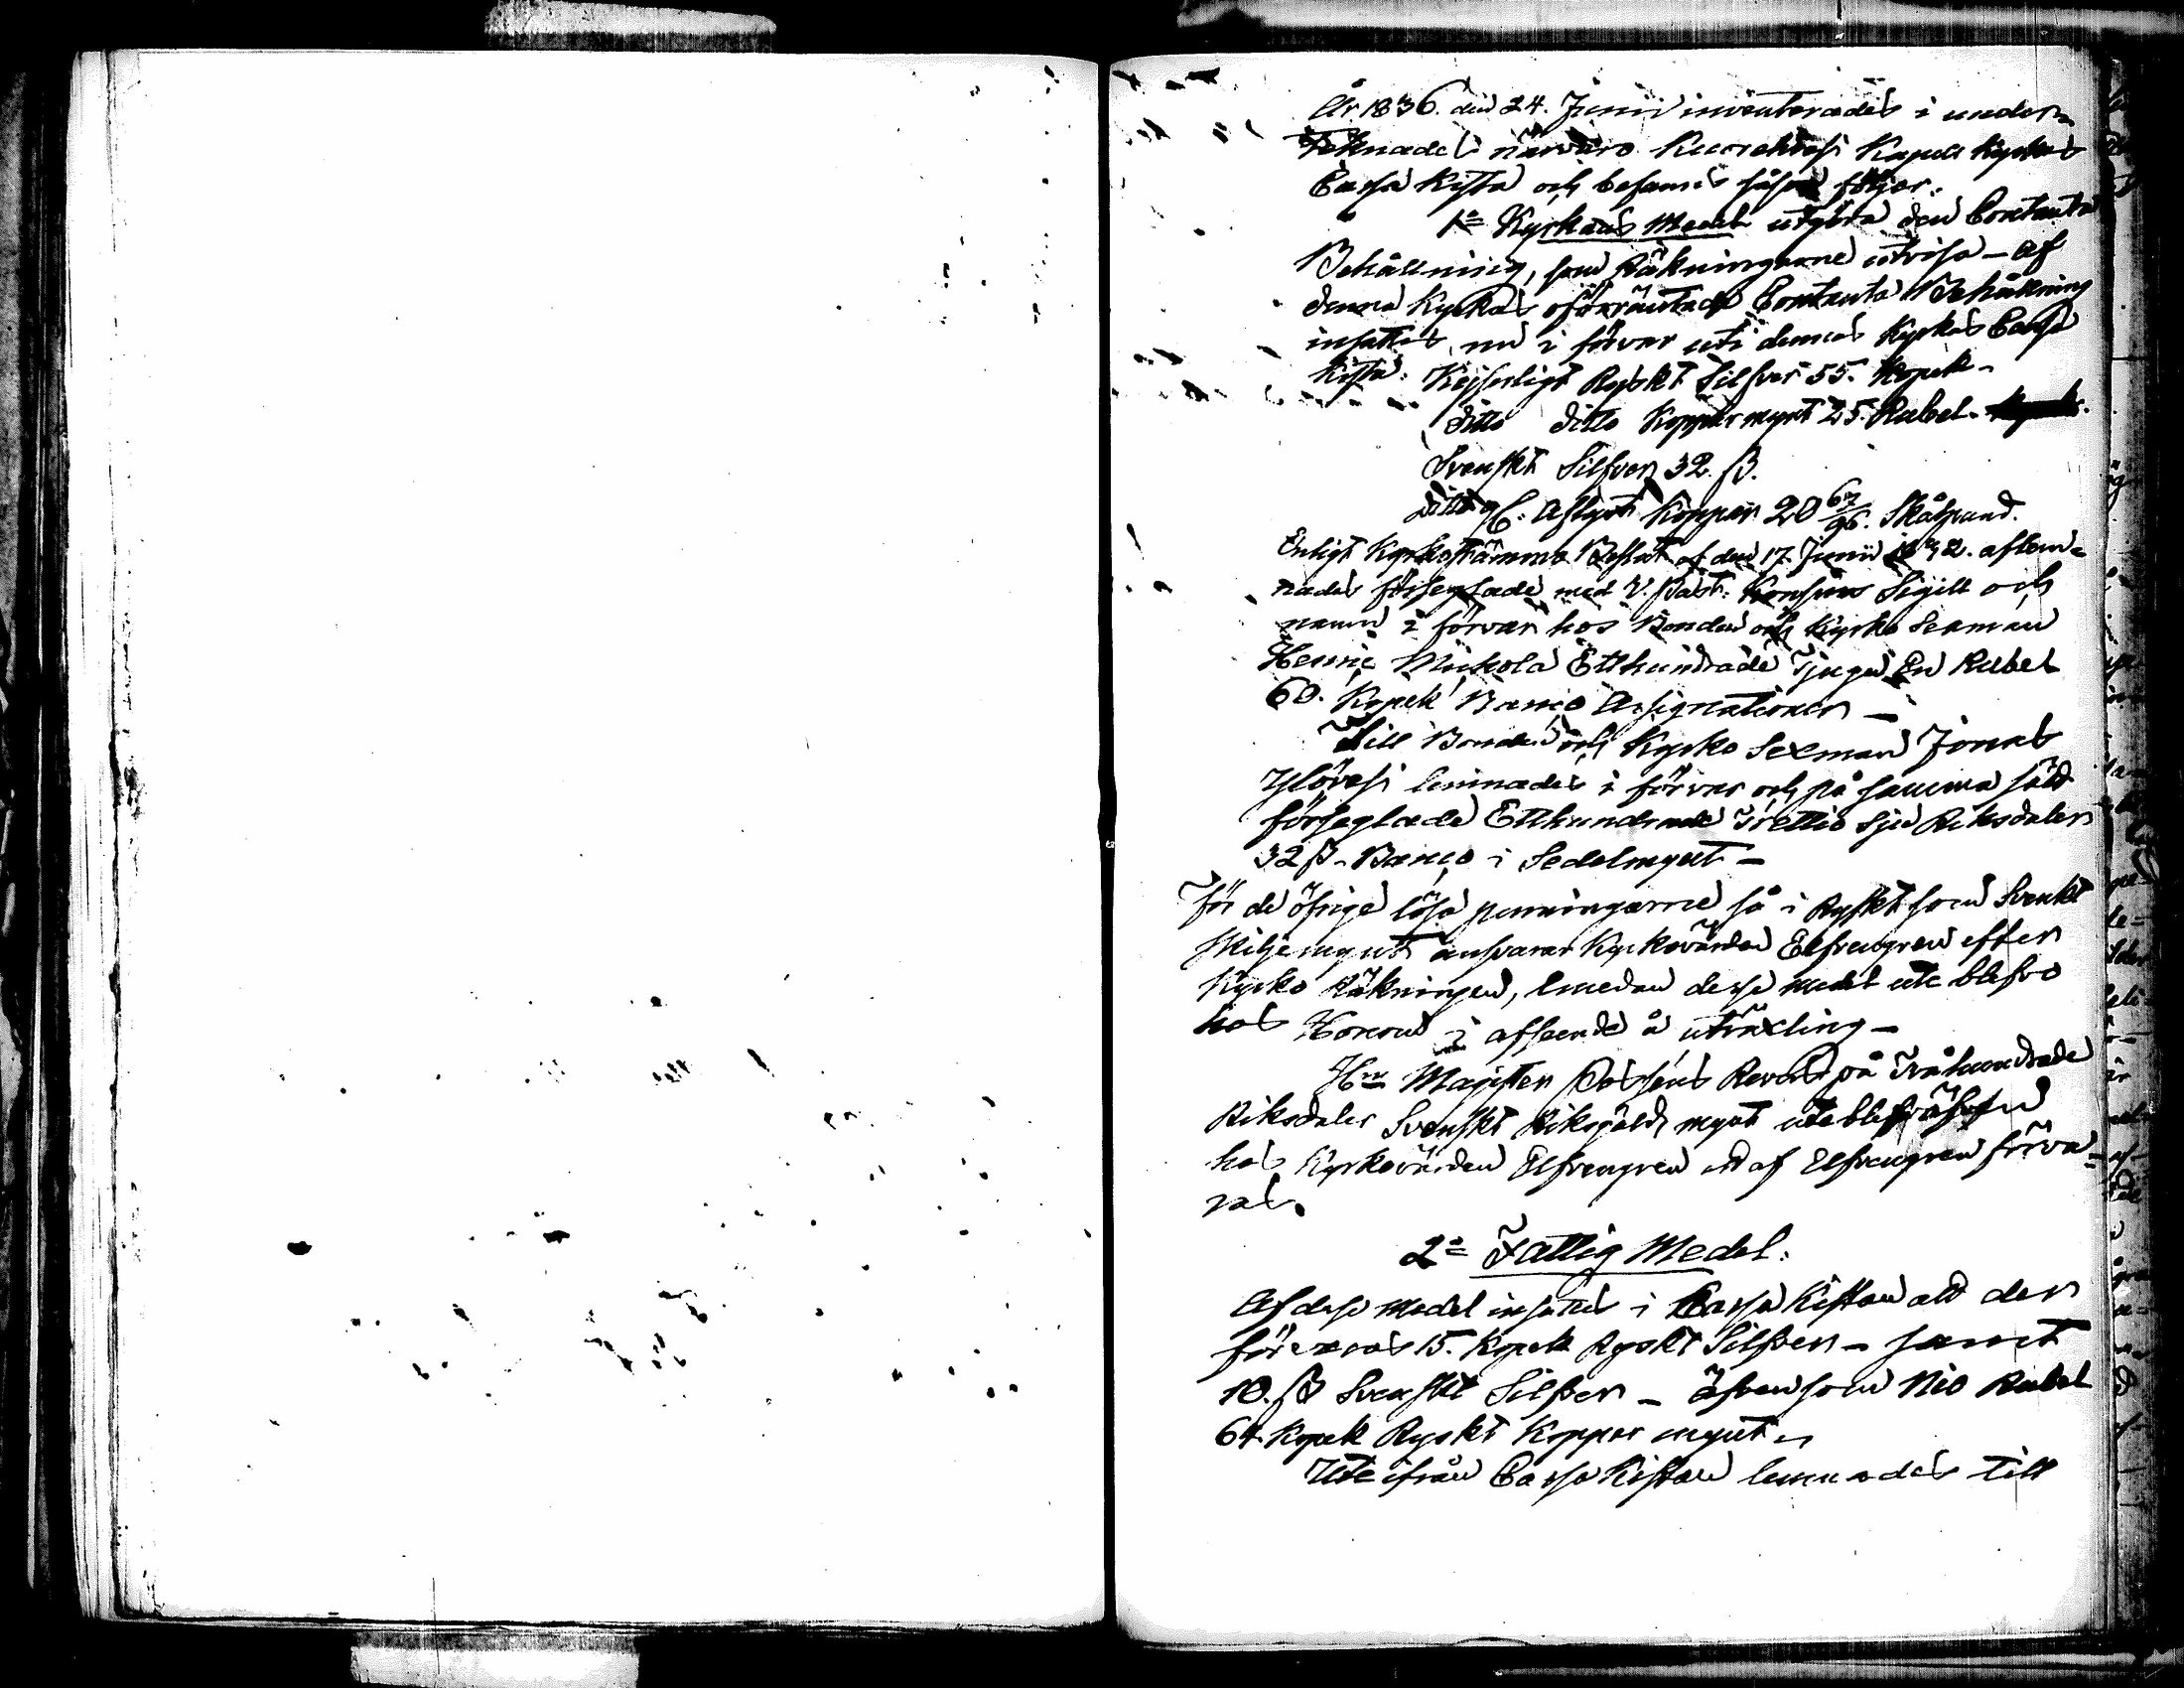 År 1836. den 24. Junii inventerades i under-
teknades närvaro Kapell Kyrkas
Cassa Kista och befanns såsom följer.
1º Kyrkans Medel utgöra den Contanta
Behållning, som Räkningarne utvisa - Af
denna Kyrkas oförräntade Contanta Behållning
insattes nu i förvar uti dennas Kyrkas Cassa
Kista: Kejserligt Ryskt Silfver 55. Kopek -
Ditto Ditto Koppar mynt 25. Rubel.
Svenskt Silfver 32. ß.
Ditto Aflyst Koppar 20 Skålpund.
Enligt Kyrkostämmo Beslut af den 17 Junii aflem-
nades förseglade med V. Past: Sigill och
namn i förvar hos Bonden och Kyrko Sexman
Henric Niickola Etthundrade Tjugu En Rubel
60. Kopek Banco Assignationer -
Till Bonden och Kyrko Sexman Jonas
Ylövesi lemnades i förvar och på samma sätt
förseglade Etthundrade Trettio Sju Riksdaler
32 ß. Banco i Sedelmynt -
För de öfrige lösa penningarne så i Ryskt som Svenskt
Skiljemynt ansvarar Kyrkovärden Elfvengren efter
Kyrko Räkningen, emedan dessa medel ute blefvo
hos Honom i afseende å utväxling -
Hrr Magister Revers på Tvåhundrade
Riksdaler Svenskt Riksgälds mynt uteblef
hos Kyrkovärden Elfvengren at af Elfvengren förva-
ras.
2º Fattig Medel:
Af dessa Medel insattes i Cassa Kistan att der
förvaras 15. Kopek Ryskt Silfver - samt
10. ß Svenskt Silfver - äfvensom Nio Rubel
64 Kopek Ryskt Koppar mynt -
Ute ifrån Cassa Kistan lemnades till